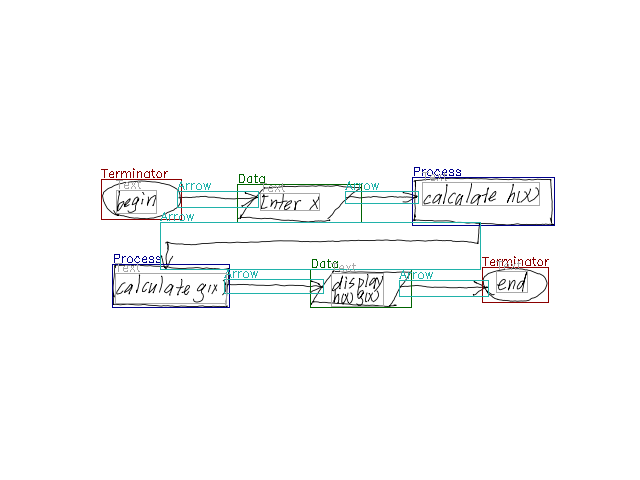 Terminator
Text
begin
Arrow
Data
Text
Enter x
Arrow
Process
Text
calculate h(x)
Arrow
Process
Text
calculate g(x)
Arrow
Data
Text
display
h(x) g(x)
Arrow
Terminator
Text
end